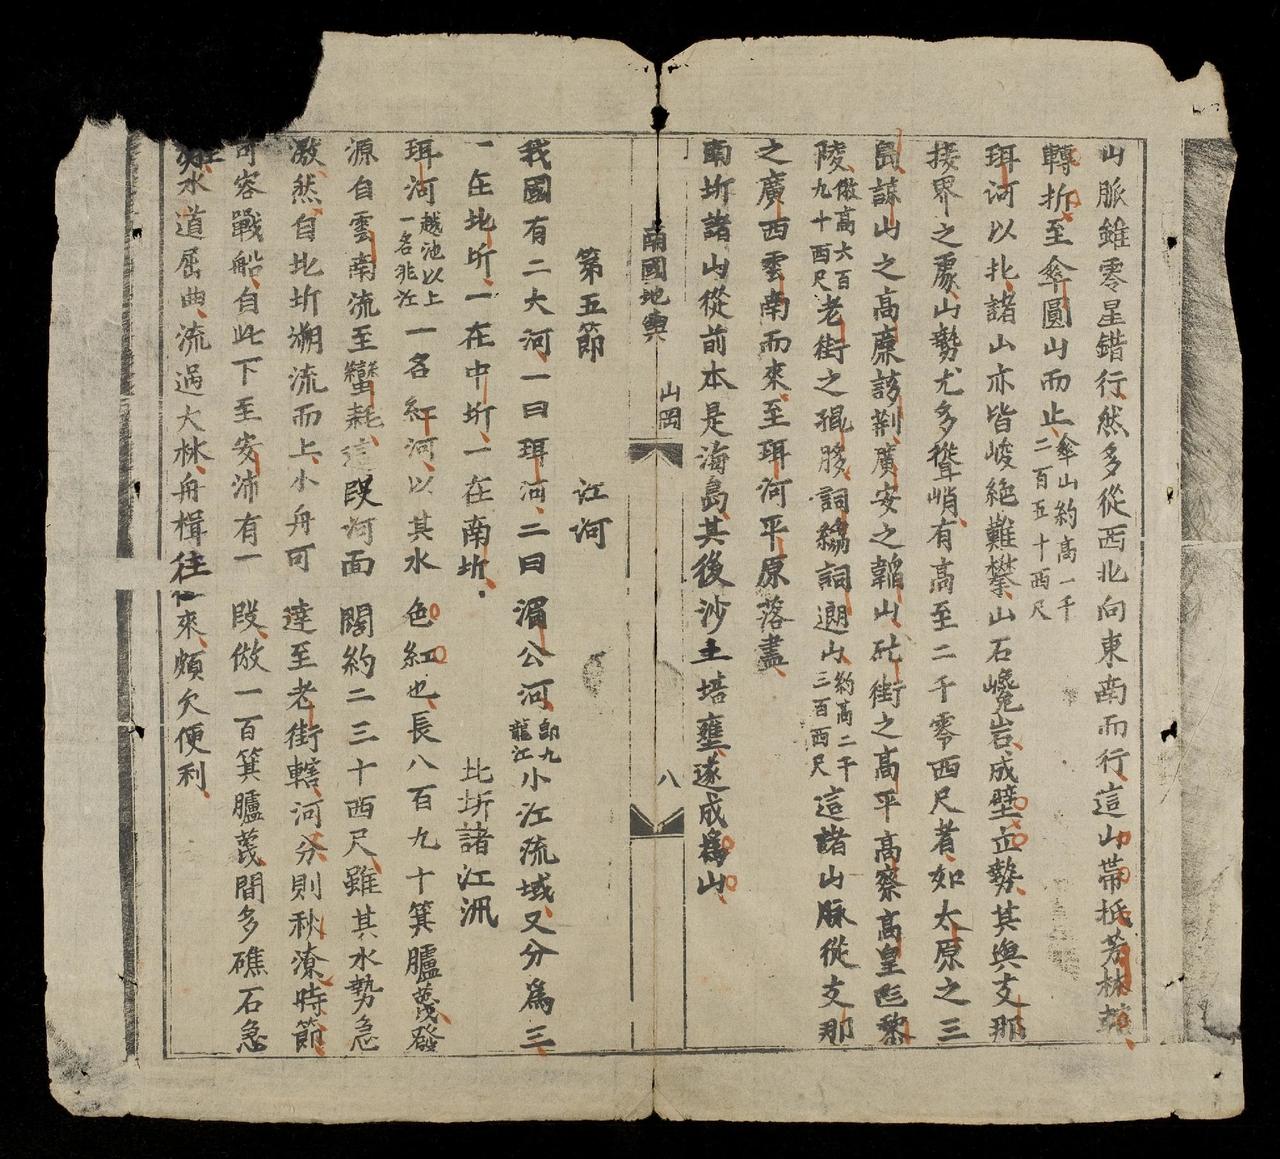 山脈雖零星錯行然多從西北向東南而行這山帶抵芳林
轉折至傘圓山而止傘山約高一千二百五十西尺
珥河以北諸山亦皆峻絶難攀山石巉岩成壁立勢其與支那
接界之處山勢尤多聳峭有高至二千零西尺者如太原之三
島諒山之高廪諺荆廣安之韜山砒街之高平高察高皇匙黎
陵傲高六百九十西尺老街之猑胗詞綿詞遡山約高二千三百西尺這諸山脈從支那
之廣西雲南而來至珥河平原落盡
南圻諸山從前本是海島其後沙土培壅遂成爲山
南國地輿 山岡 八
第五節 江河
我國有二大河一曰珥河二曰湄公河即九龍江小江流域又分爲三
一在北圻一在中圻一在南圻 北圻諸江汛
珥河越池以上一名非江一名紅河以其水色紅也長八百九十箕臚蔑發
源自雲南流至蠻耗這段河面闊約二三十西尺雖其水勢急
激然自北圻溯流而上小舟可達至老街轄河分則秋潦時節
可容戰船自此下至安沛有一段倣一百箕臚蔑間多礁石急
水道屈曲流過大林舟楫往來頗欠便利